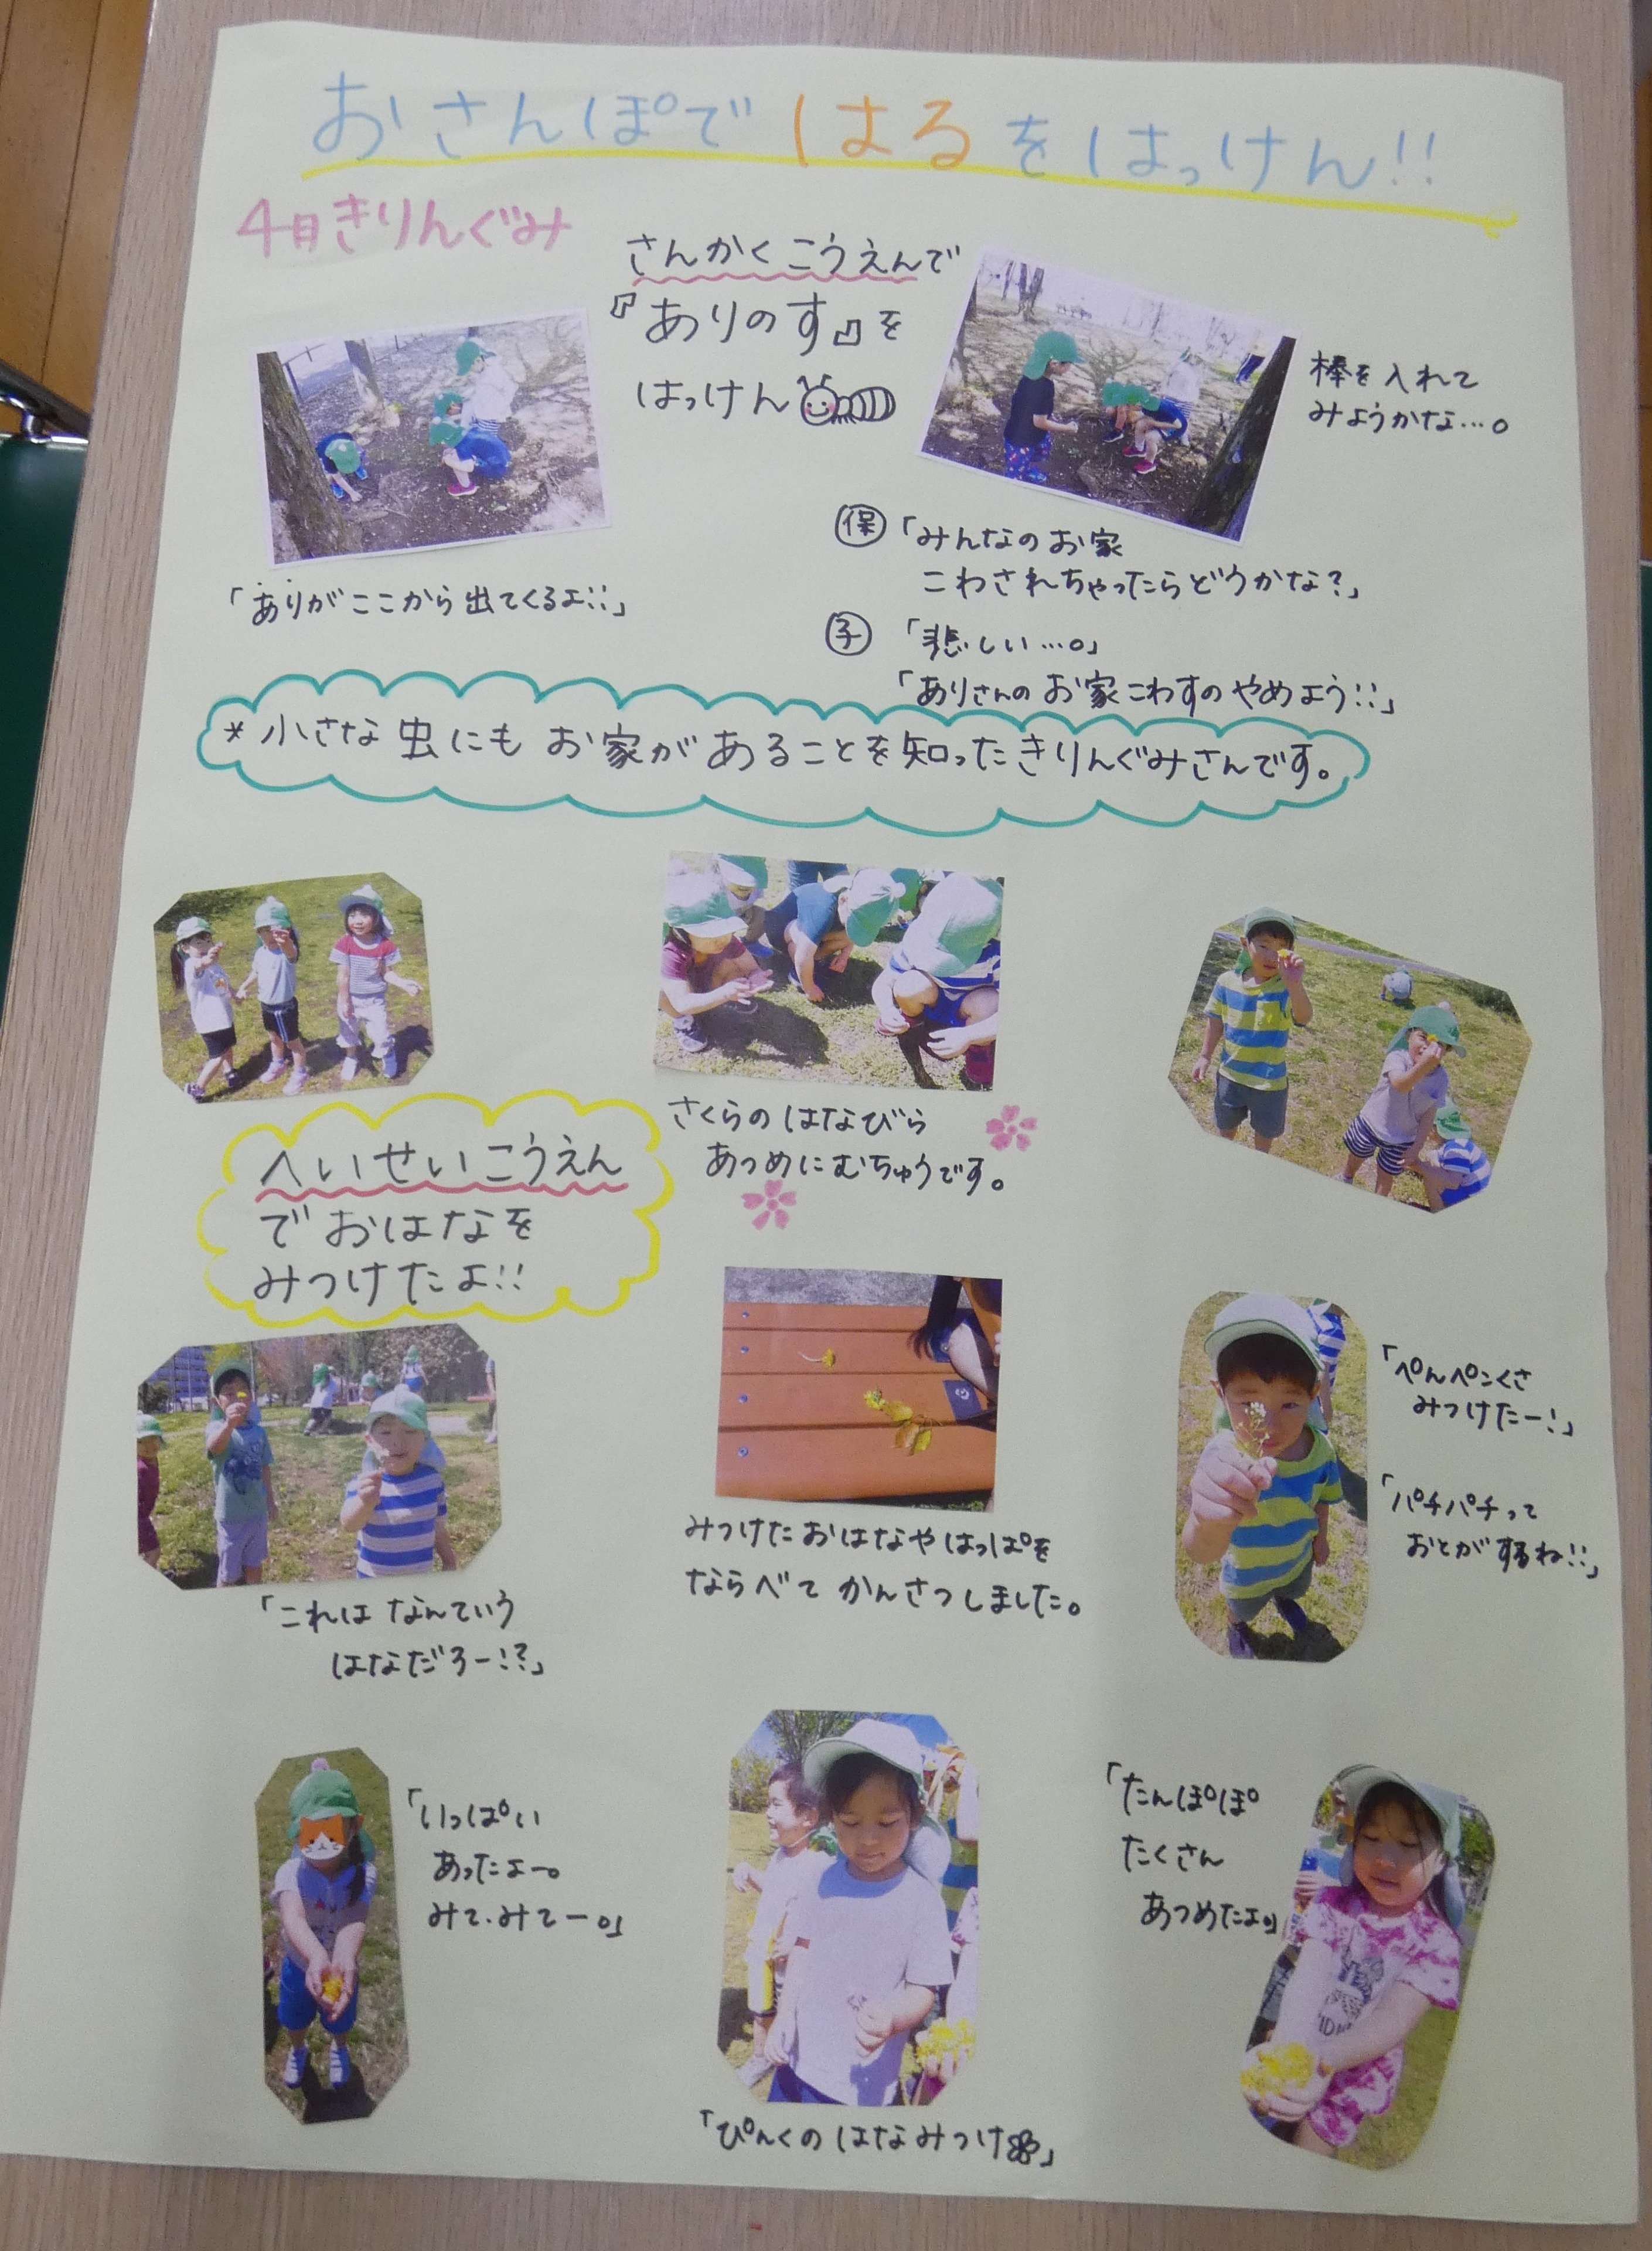 おさんぽではるをはっけん!!
4月きりんぐみ
さんかくこうえんで
『ありのす』を
はっけん
棒を入れて
みようかな…。
「ありがここから出てくるよ!!」
保「みんなのお家
こわされちゃったらどうかな?」
子「悲しい…。」
「ありさんのお家こわすのやめよう!!」
*小さな虫にもお家があることを知ったきりんぐみさんです。
さくらのはなびら
あつめにむちゅうです。
へいせいこうえん
でおはなを
みつけたよ!!
「これはなんていう
はなだろー!?」
みつけたおはなやはっぱを
ならべてかんさつしました。
「ぺんペンくさ
みつけたー!」
「パチパチって
おとがするね!!」
「いっぱい
あったよー。
みて、みてー。」
「ぴんくのはなみつけ」
「たんぽぽ
たくさん
あつめたよ。」